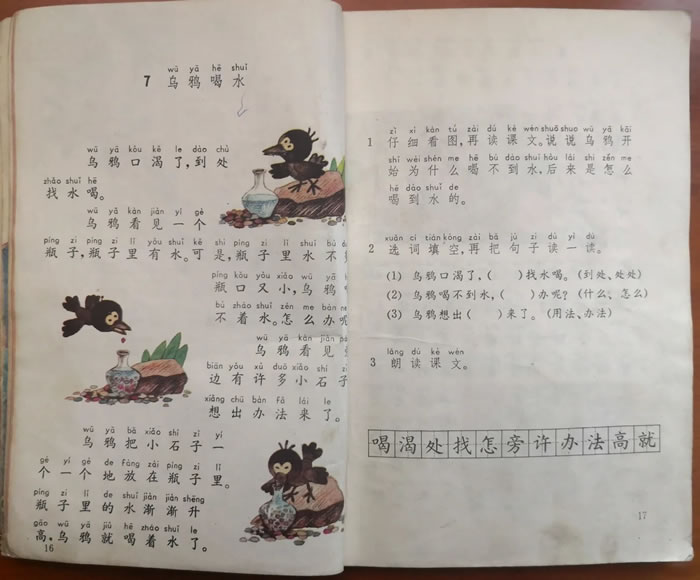 wū yā hē shuǐ
7 乌鸦喝水
wū yā kǒu kě le dào chù
乌鸦口渴了,到处
zhǎo shuǐ hē
找水喝。
wū yā kàn jiàn yí gè
乌鸦看见一个
píng zi píng zi lǐ yǒu shuǐ kě shì píng zi lǐ shuǐ bù
瓶子,瓶子里有水。可是,瓶子里水不
píng kǒu yòu xiǎo wū yā
瓶口又小,乌鸦
bù zháo shuǐ zěn me bàn ne
不着水。怎么办呢
wū yā kàn jiàn
乌鸦看见
biān yǒu xǔ duō xiǎo shí zǐ
边有许多小石子
xiǎng chū bàn fǎ lái le
想出办法来了。
wū yā bǎ xiǎo shí zǐ yí
乌鸦把小石子一
gè yí gè de fàng zài píng zi lǐ
个一个地放在瓶子里。
píng zi lǐ de shuǐ jiàn jiàn shēng
瓶子里的水渐渐升
gāo wū yā jiù hē zháo shuǐ le
高,乌鸦就喝着水了。
16
zǐ xì kàn tú zài dú kè wén shuō shuo wū yā kāi
1 仔细看图,再读课文。说说乌鸦开
shǐ wèi shén me hē bú dào shuǐ hòu lái shì zěn me
始为什么喝不到水,后来是怎么
hē dào shuǐ de
喝到水的。
xuǎn cí tián kòng zài bǎ jù zi dú yì dú
2 选词填空,再把句子读一读。
(1) 乌鸦口渴了,( )找水喝。(到处、处处)
(2) 乌鸦喝不到水,( )办呢?(什么、怎么)
(3) 乌鸦想出( )来了。(用法、办法)
lǎng dú kè wén
3 朗读课文。
喝渴处找怎旁许办法高就
17